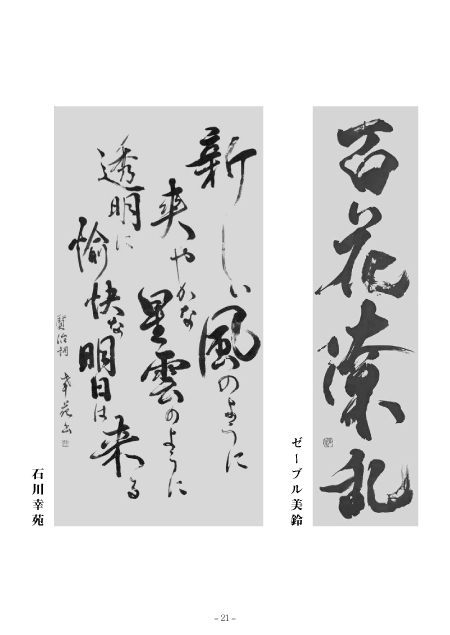 百花繚乱
ゼーブル美鈴
新しい風のように
爽やかな星雲のように
透明に
愉快な明日は来る
賢治詞 幸苑書
石川幸苑
– 21 –